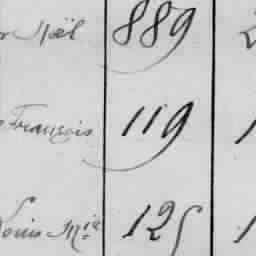 Noël 889 2
François 119 1
Louis Mie 125 1